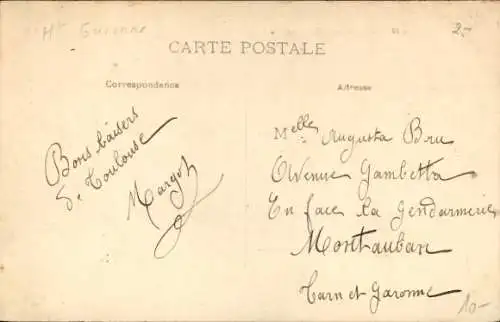 Hte Garonne
2.-
CARTE POSTALE
Correspondance
Adresse
Bons baisers
de Toulouse
Margot
Melle Augusta Bru
Avenue Gambetta
En face la Gendarmerie
Montauban
Tarn et Garonne
10-